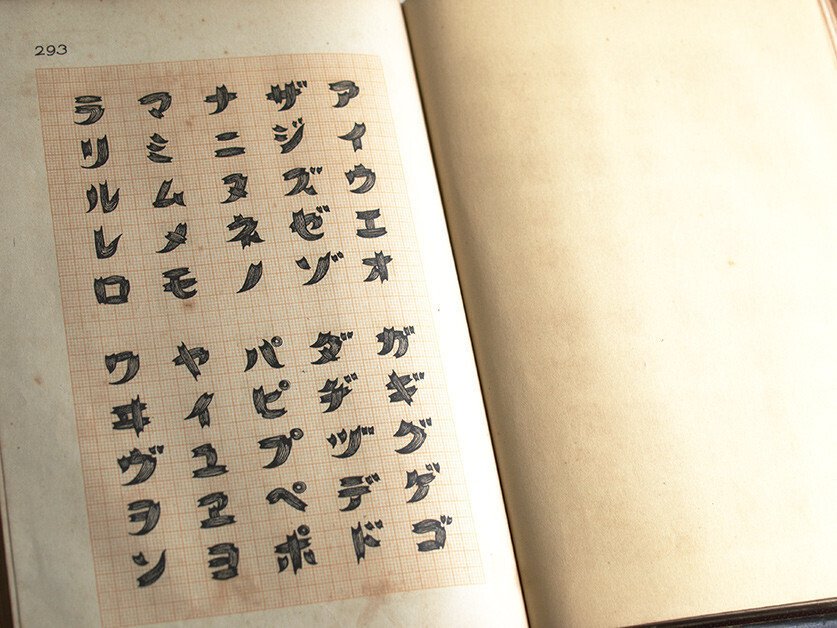 293
アイウエオ
ザジズゼゾ
ナニヌネノ
マミムメモ
ラリルレロ
ガギグゲゴ
ダヂヅデド
パピプペポ
ヤイユヱヨ
ワヰヴヲン